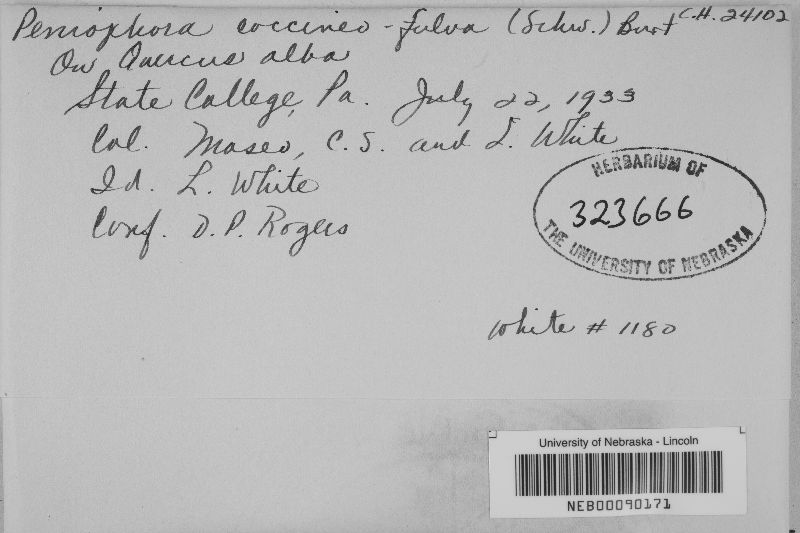 Peniophora coccineo-fulva (Schw.) Burt C.H. 24102
On Quercus alba
State College, Pa. July 22, 1933
Col. Moseo, C.S. and L. White
Id. L. White
Conf. D.P. Rogers
HERBARIUM OF
323666
THE UNIVERSITY OF NEBRASKA
White # 1180
University of Nebraska - Lincoln
NEB00090171